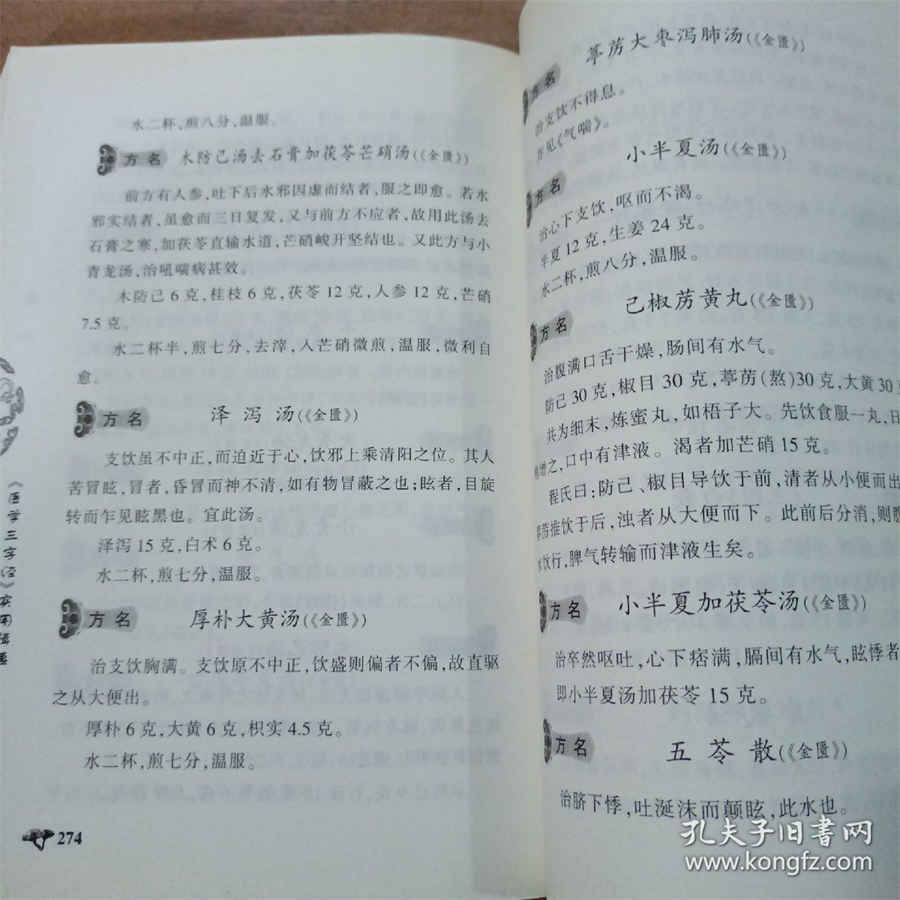 水二杯,煎八分,温服。
方名 木防己汤去石膏加茯苓芒硝汤(《金匮》)
前方有人参,吐下后水邪因虚而结者,服之即愈。若水
邪实结者,虽愈而三日复发,又与前方不应者,故用此汤去
石膏之寒,加茯苓直输水道,芒硝峻开坚结也。又此方与小
青龙汤,治吼喘病甚效。
木防己6克,桂枝6克,茯苓12克,人参12克,芒硝
7.5克。
水二杯半,煎七分,去滓,入芒硝微煎,温服,微利自
愈。
方名 泽泻汤(《金匮》)
支饮虽不中正,而迫近于心,饮邪上乘清阳之位。其人
苦冒眩,冒者,昏冒而神不清,如有物冒蔽之也;眩者,目旋
转而乍见眩黑也。宜此汤。
泽泻15克,白术6克。
水二杯,煎七分,温服。
方名 厚朴大黄汤(《金匮》)
治支饮胸满。支饮原不中正,饮盛则偏者不偏,故直驱
之从大便出。
厚朴6克,大黄6克,枳实4.5克。
水二杯,煎七分,温服。
274
《医学三字经》实用
方名 葶苈大枣泻肺汤(《金匮》)
治支饮不得息。
方见《气喘》。
方名 小半夏汤(《金匮》)
治心下支饮,呕而不渴。
半夏12克,生姜24克。
水二杯,煎八分,温服。
方名 己椒苈黄丸(《金匮》)
治腹满口舌干燥,肠间有水气。
防己30克,椒目30克,葶苈(熬)30克,大黄30
共为细末,炼蜜丸,如梧子大。先饮食服一丸;日
增之,口中有津液。渴者加芒硝15克。
程氏曰:防己、椒目导饮于前,清者从小便而出
苈推饮于后,浊者从大便而下。此前后分消,则腹
饮行,脾气转输而津液生矣。
方名 小半夏加茯苓汤(《金匮》)
治卒然呕吐,心下痞满,膈间有水气,眩悸者
即小半夏汤加茯苓15克。
方名 五苓散(《金匮》)
治脐下悸,吐涎沫而颠眩,此水也。
孔夫子旧书网
www.kongfz.com